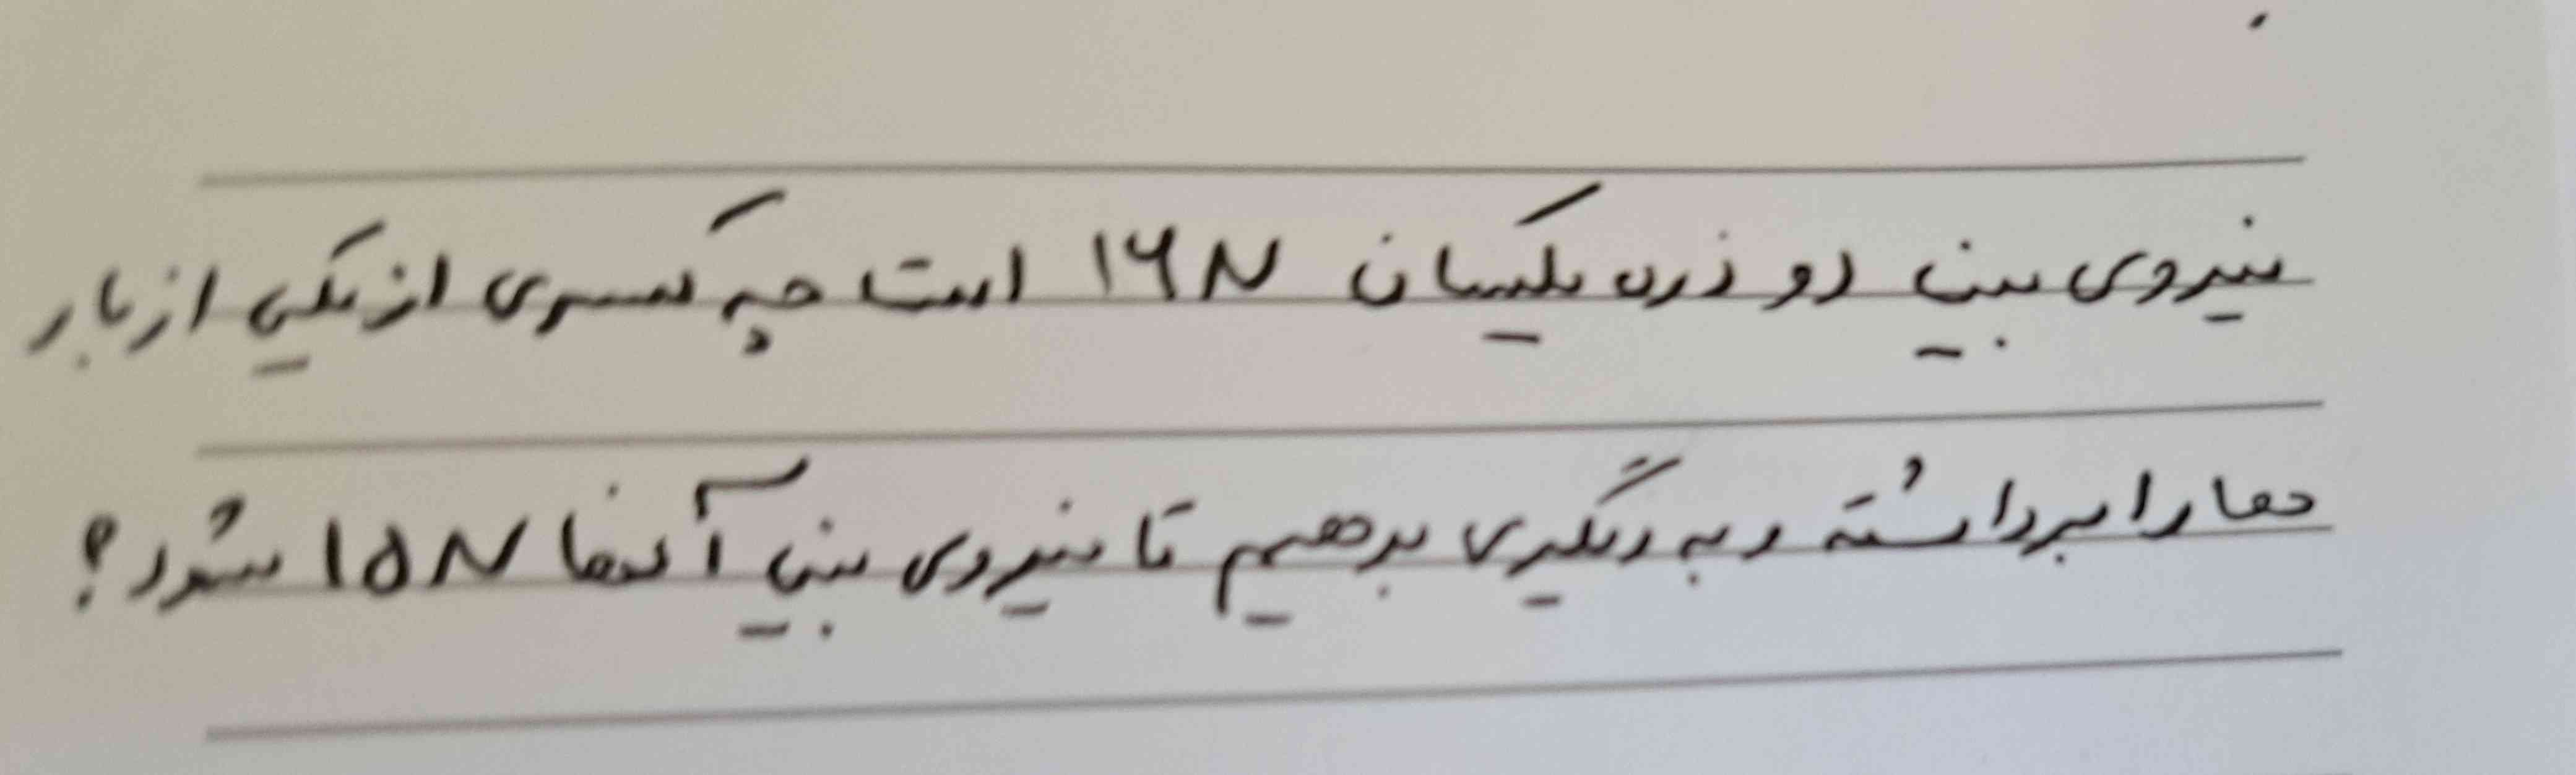 نیروی بین دو ذره یکسان ۱۶N است چه کسری از یکی از بار
ها را برداشته و به دیگری بدهیم تا نیروی بین آنها ۱۵N شود؟